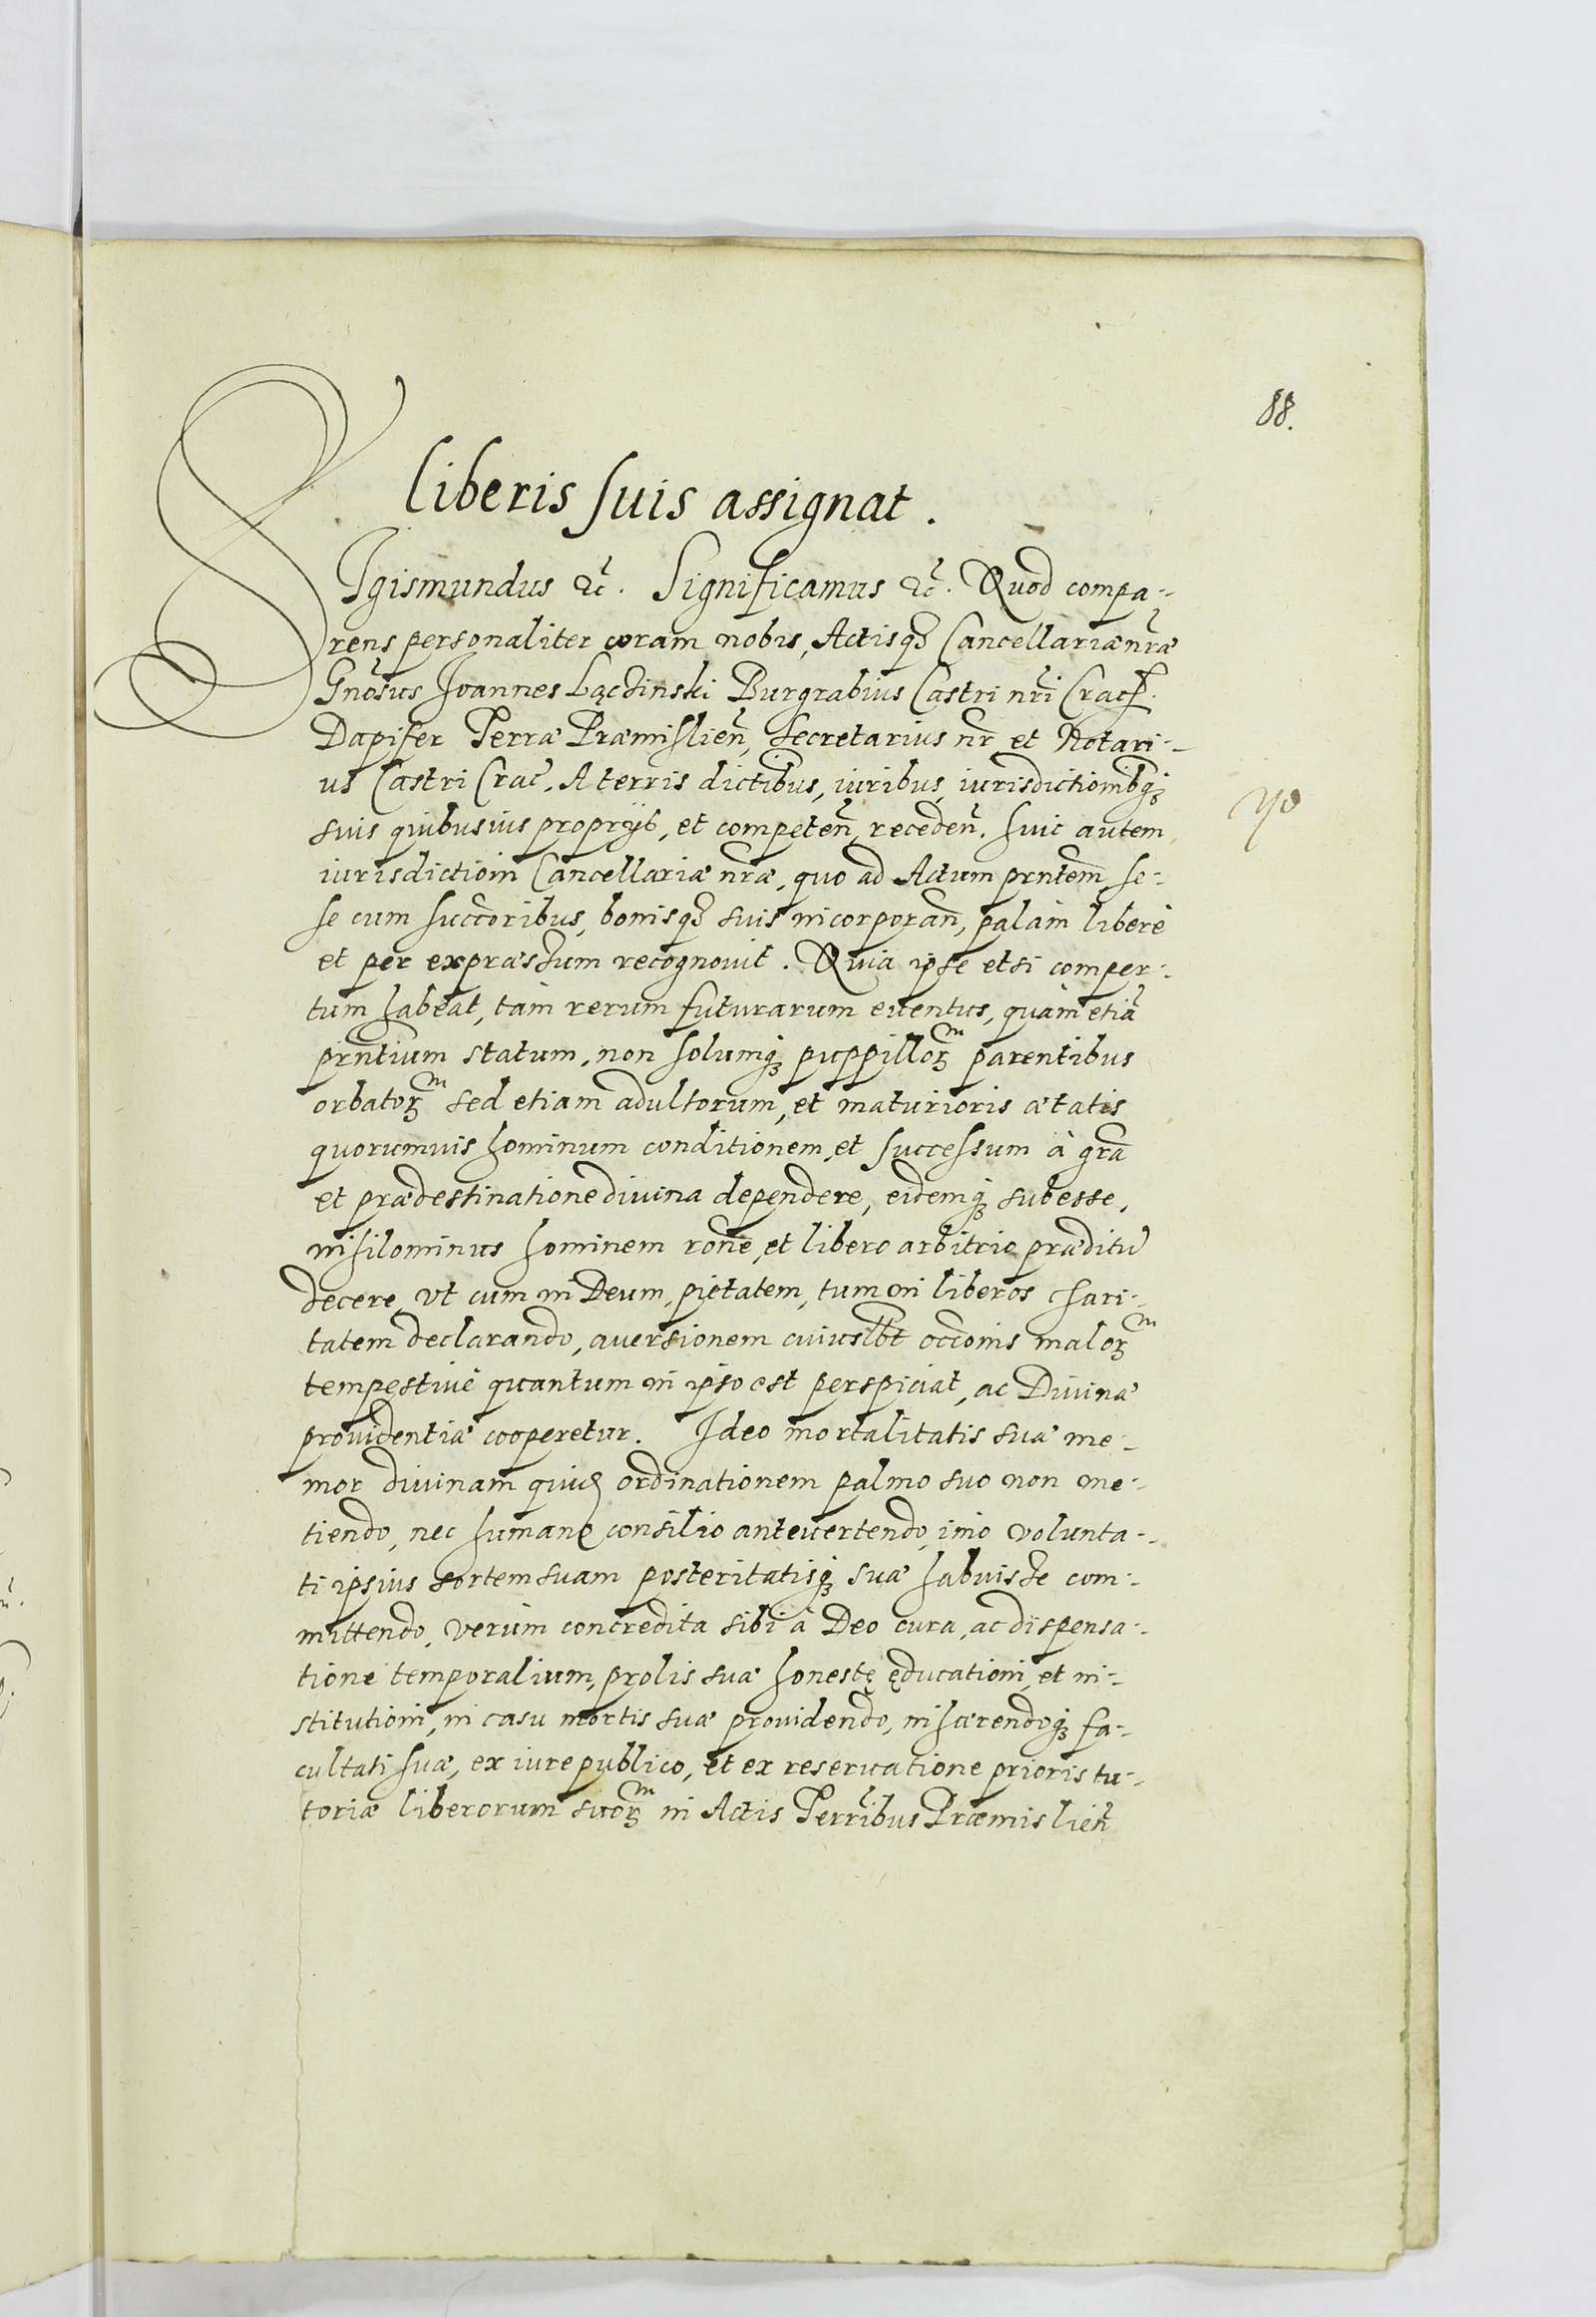 88.
liberis suis assignat.
SIgismundus &c̃. Significamus &c̃. Quod compa-
rens personaliter coram nobis, Actisq̃ Cancellariæ nr̃æ
Gnõsus Joannes Łąchinski Burgrabius Castri nr̃i Crac̃.
Dapifer Terræ Præmislien̄, Secretarius nr̃ et Notari-
us Castri Crac̃. A terris dictibus, iuribus, iurisdictionibq;
suis quibusuis proprijs, et competen̄, receden̄. huic autem
iurisdictioĩn Cancellariæ nr̃æ, quo ad Actum prñtem se-
se cum succc̃oribus, bonisq̃ suis incorporan̄, palàm liberè
et per expræssum recognouit. Quia ipse etsi comper-
tum habeat, tàm rerum futurarum euentus, quàm etiã
prñtium statum, non solumq; puppilloꝝᵐ parentibus
orbatoꝝᵐ sed etiam adultorum, et maturioris ætatis
quorumuis hominum conditionem, et successum à grã
et prædestinatione diuina dependere, eidemq; subesse,
nihilominus hominem rõne, et libero arbitrio præditũ
decere, vt cum in Deum, pietatem, tum in liberos chari-
tatem declarando, auersionem cuiuslb̃t occõnis maloꝝᵐ
tempestiuè quantum in ipso est perspiciat, ac Diuinæ
prouidentiæ cooperetur. Ideo mortalitatis suæ me-
mor diuinam ordinationem palmo suo non me-
tiendo, nec humano consilio anteuertendo, imò volunta-
ti ipsius sortem suam posteritatisq; suæ habuisse com-
mittendo, verùm concredita sibi à Deo cura, ac dispensa-
tione temporalium, prolis suæ honestę ęducationi, et in-
stitutioni, in casu mortis suæ prouidendo, inhærendoq; fa-
cultati suæ, ex iure publico, et ex reseruatione prioris tu-
toriæ liberorum suoꝝᵐ in Actis Terr̃ibus Præmislien̄